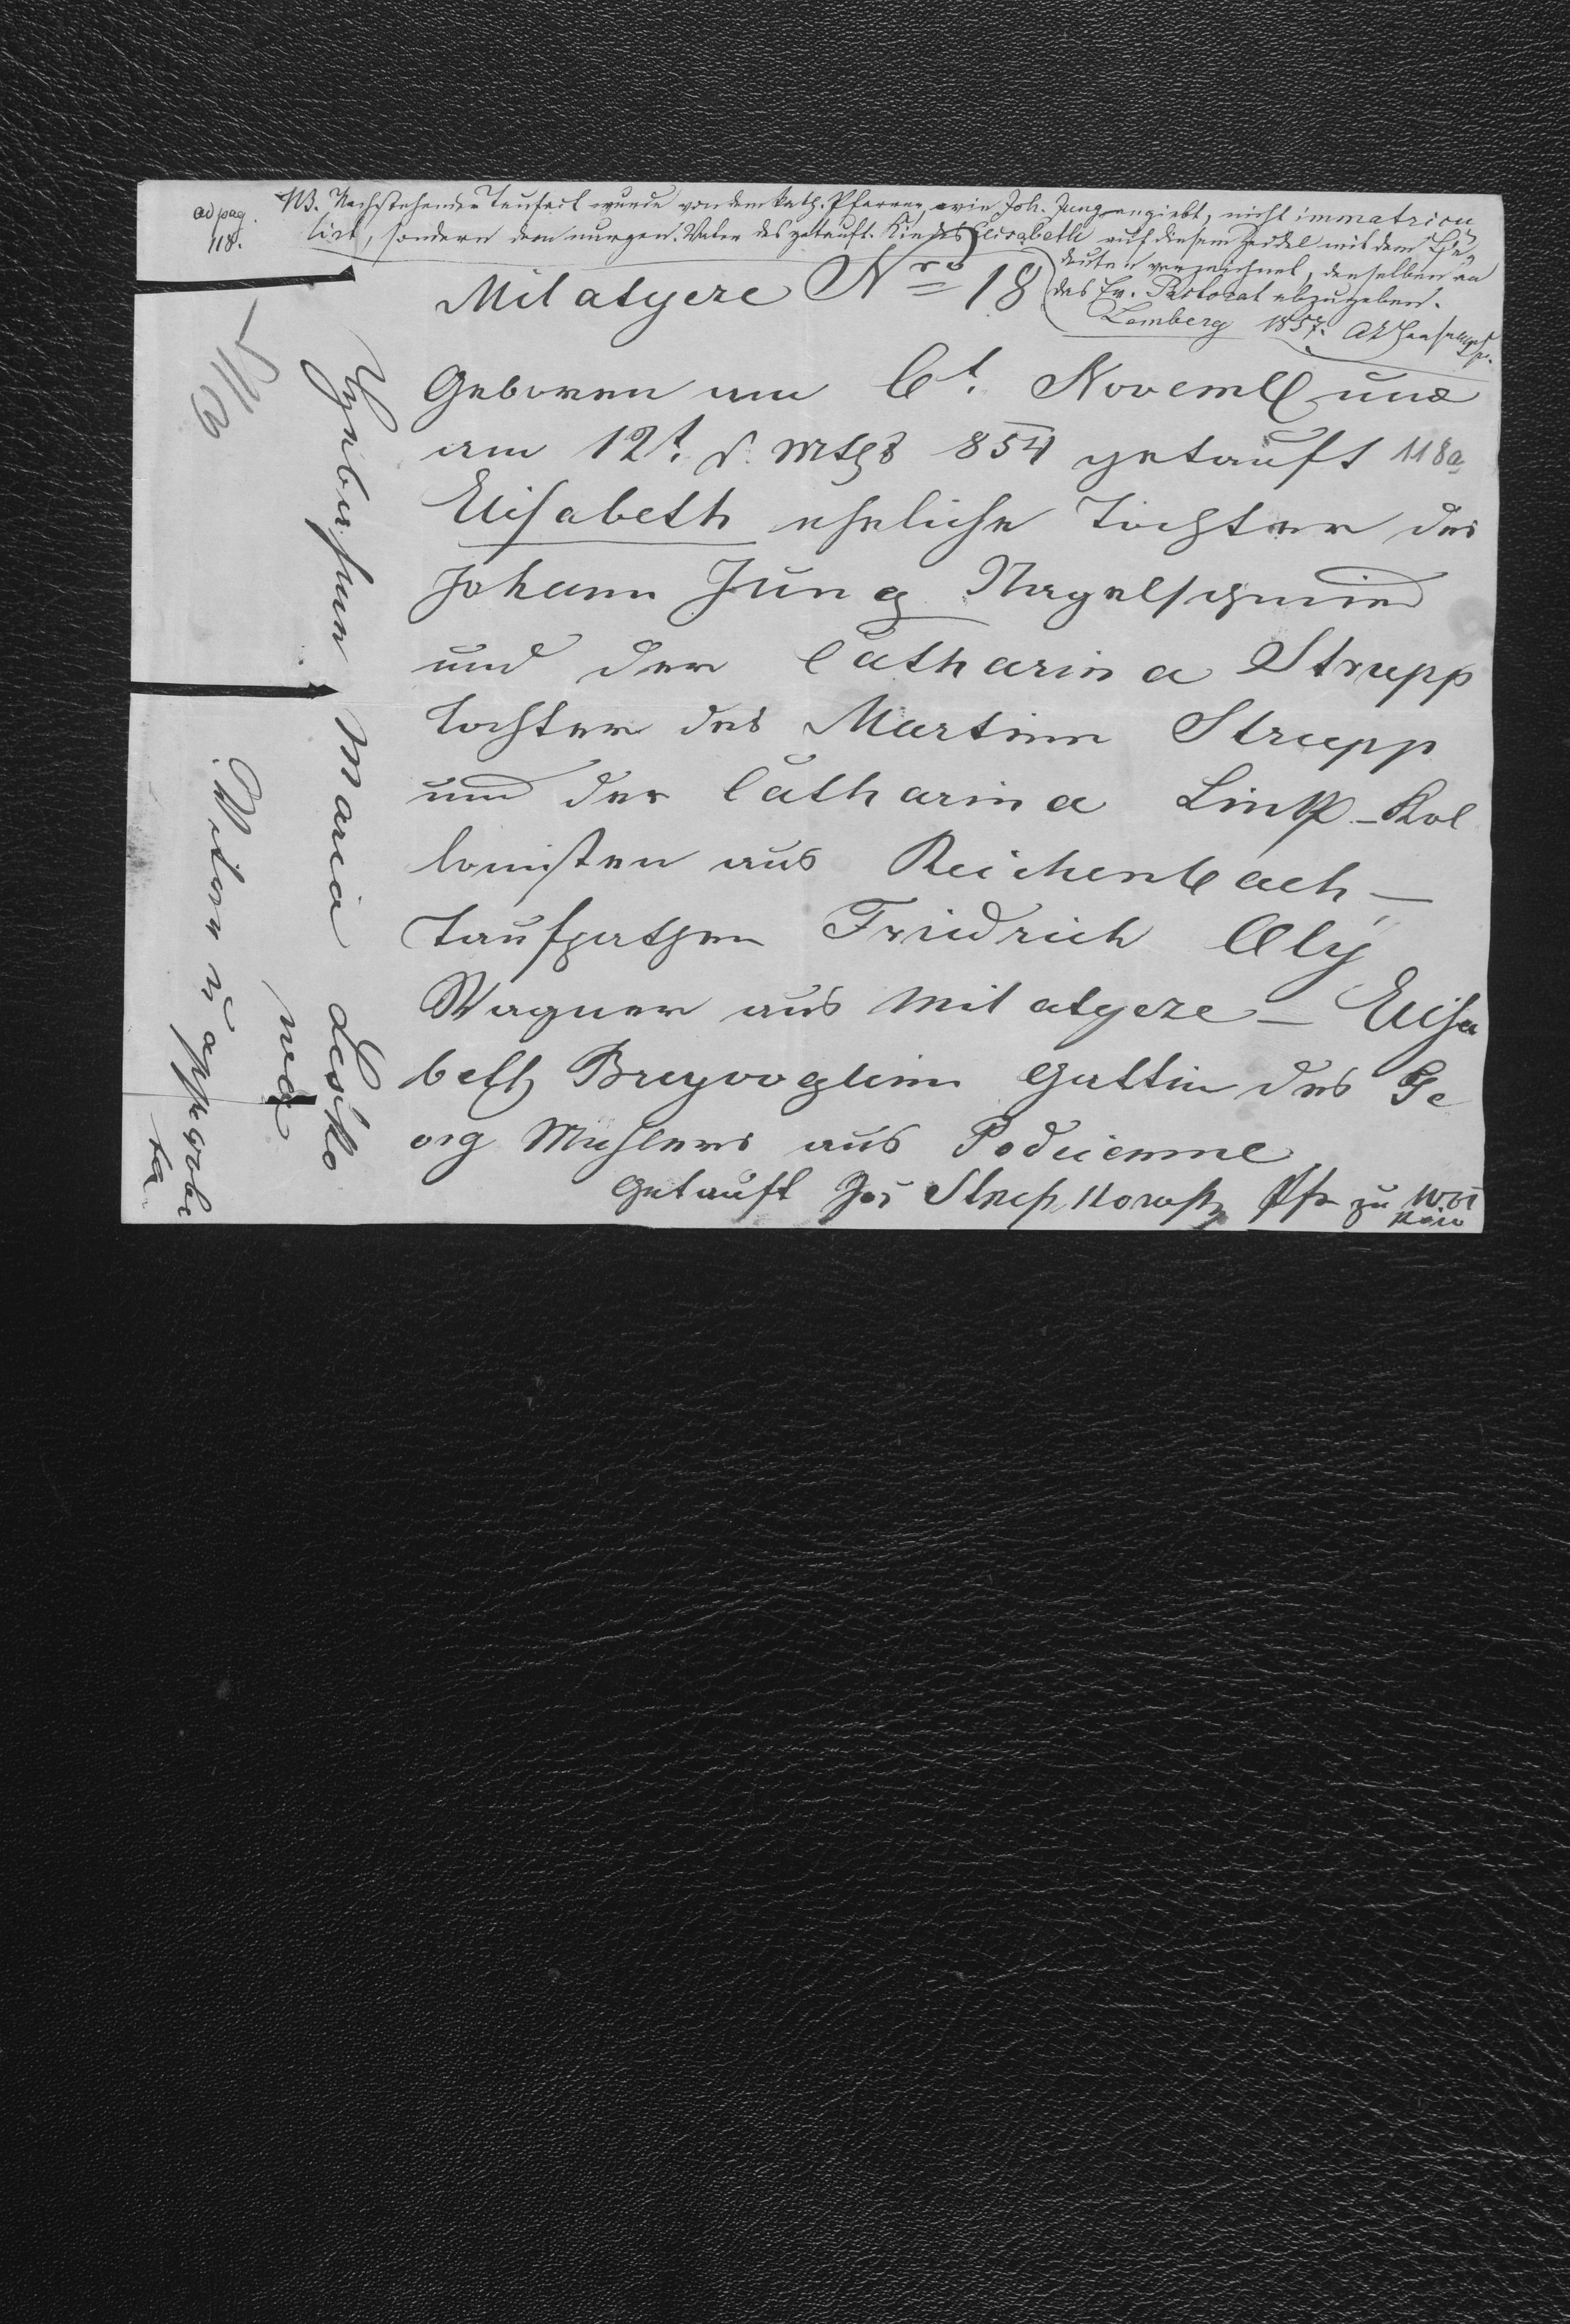 ad pag.
118.
NB. Nachstehender Taufact wurde von dem kath. Pfarrer, wie Joh. Jung angiebt, nicht immatricu-
lirt, sondern dem Vater des getauft. Kindes Elisabeth auf diesem Zeddel mit dem Be-
deuten verzeichnet, denselben an
das Ev. Pastorat abzugeben.
Lemberg 1857.
Milatycze Nro 18
Geboren am 6t. Novemb und
am 12t. d. Mths 854 getauft 118a
Elisabeth eheliche Tochter des
Johann Jung Nagelschmied
und der Catharina Strupp
Tochter des Martin Strupp
und der Catharina Link - Kol
lonisten aus Reichenbach -
Taufpathen Fridrich Oly
Wagner aus Milatycze - Elisa
beth Breyvoglin Gattin des Ge
org aus Podciemne
Getauft Jos
Maria Lesko
wa